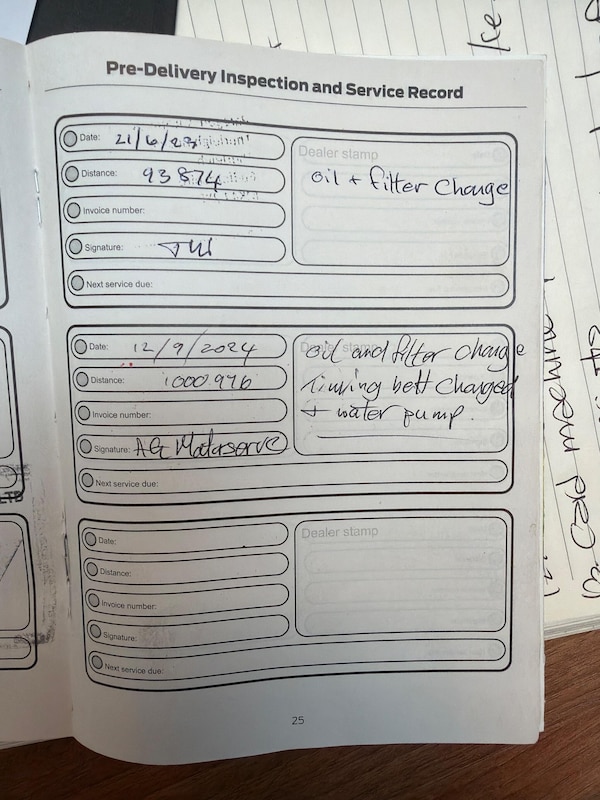 Pre-Delivery Inspection and Service Record
Date: 21/6/23
Distance: 93874
Invoice number:
Signature:
Next service due:
Dealer stamp
Oil + filter Change
Date: 12/9/2024
Distance: 1000976
Invoice number:
Signature: AG Motorserve
Next service due:
Dealer stamp
Oil and filter Change
Timing belt Changed
+ water pump.
Date:
Distance:
Invoice number:
Signature:
Next service due:
Dealer stamp
25
LTD
Cold machine